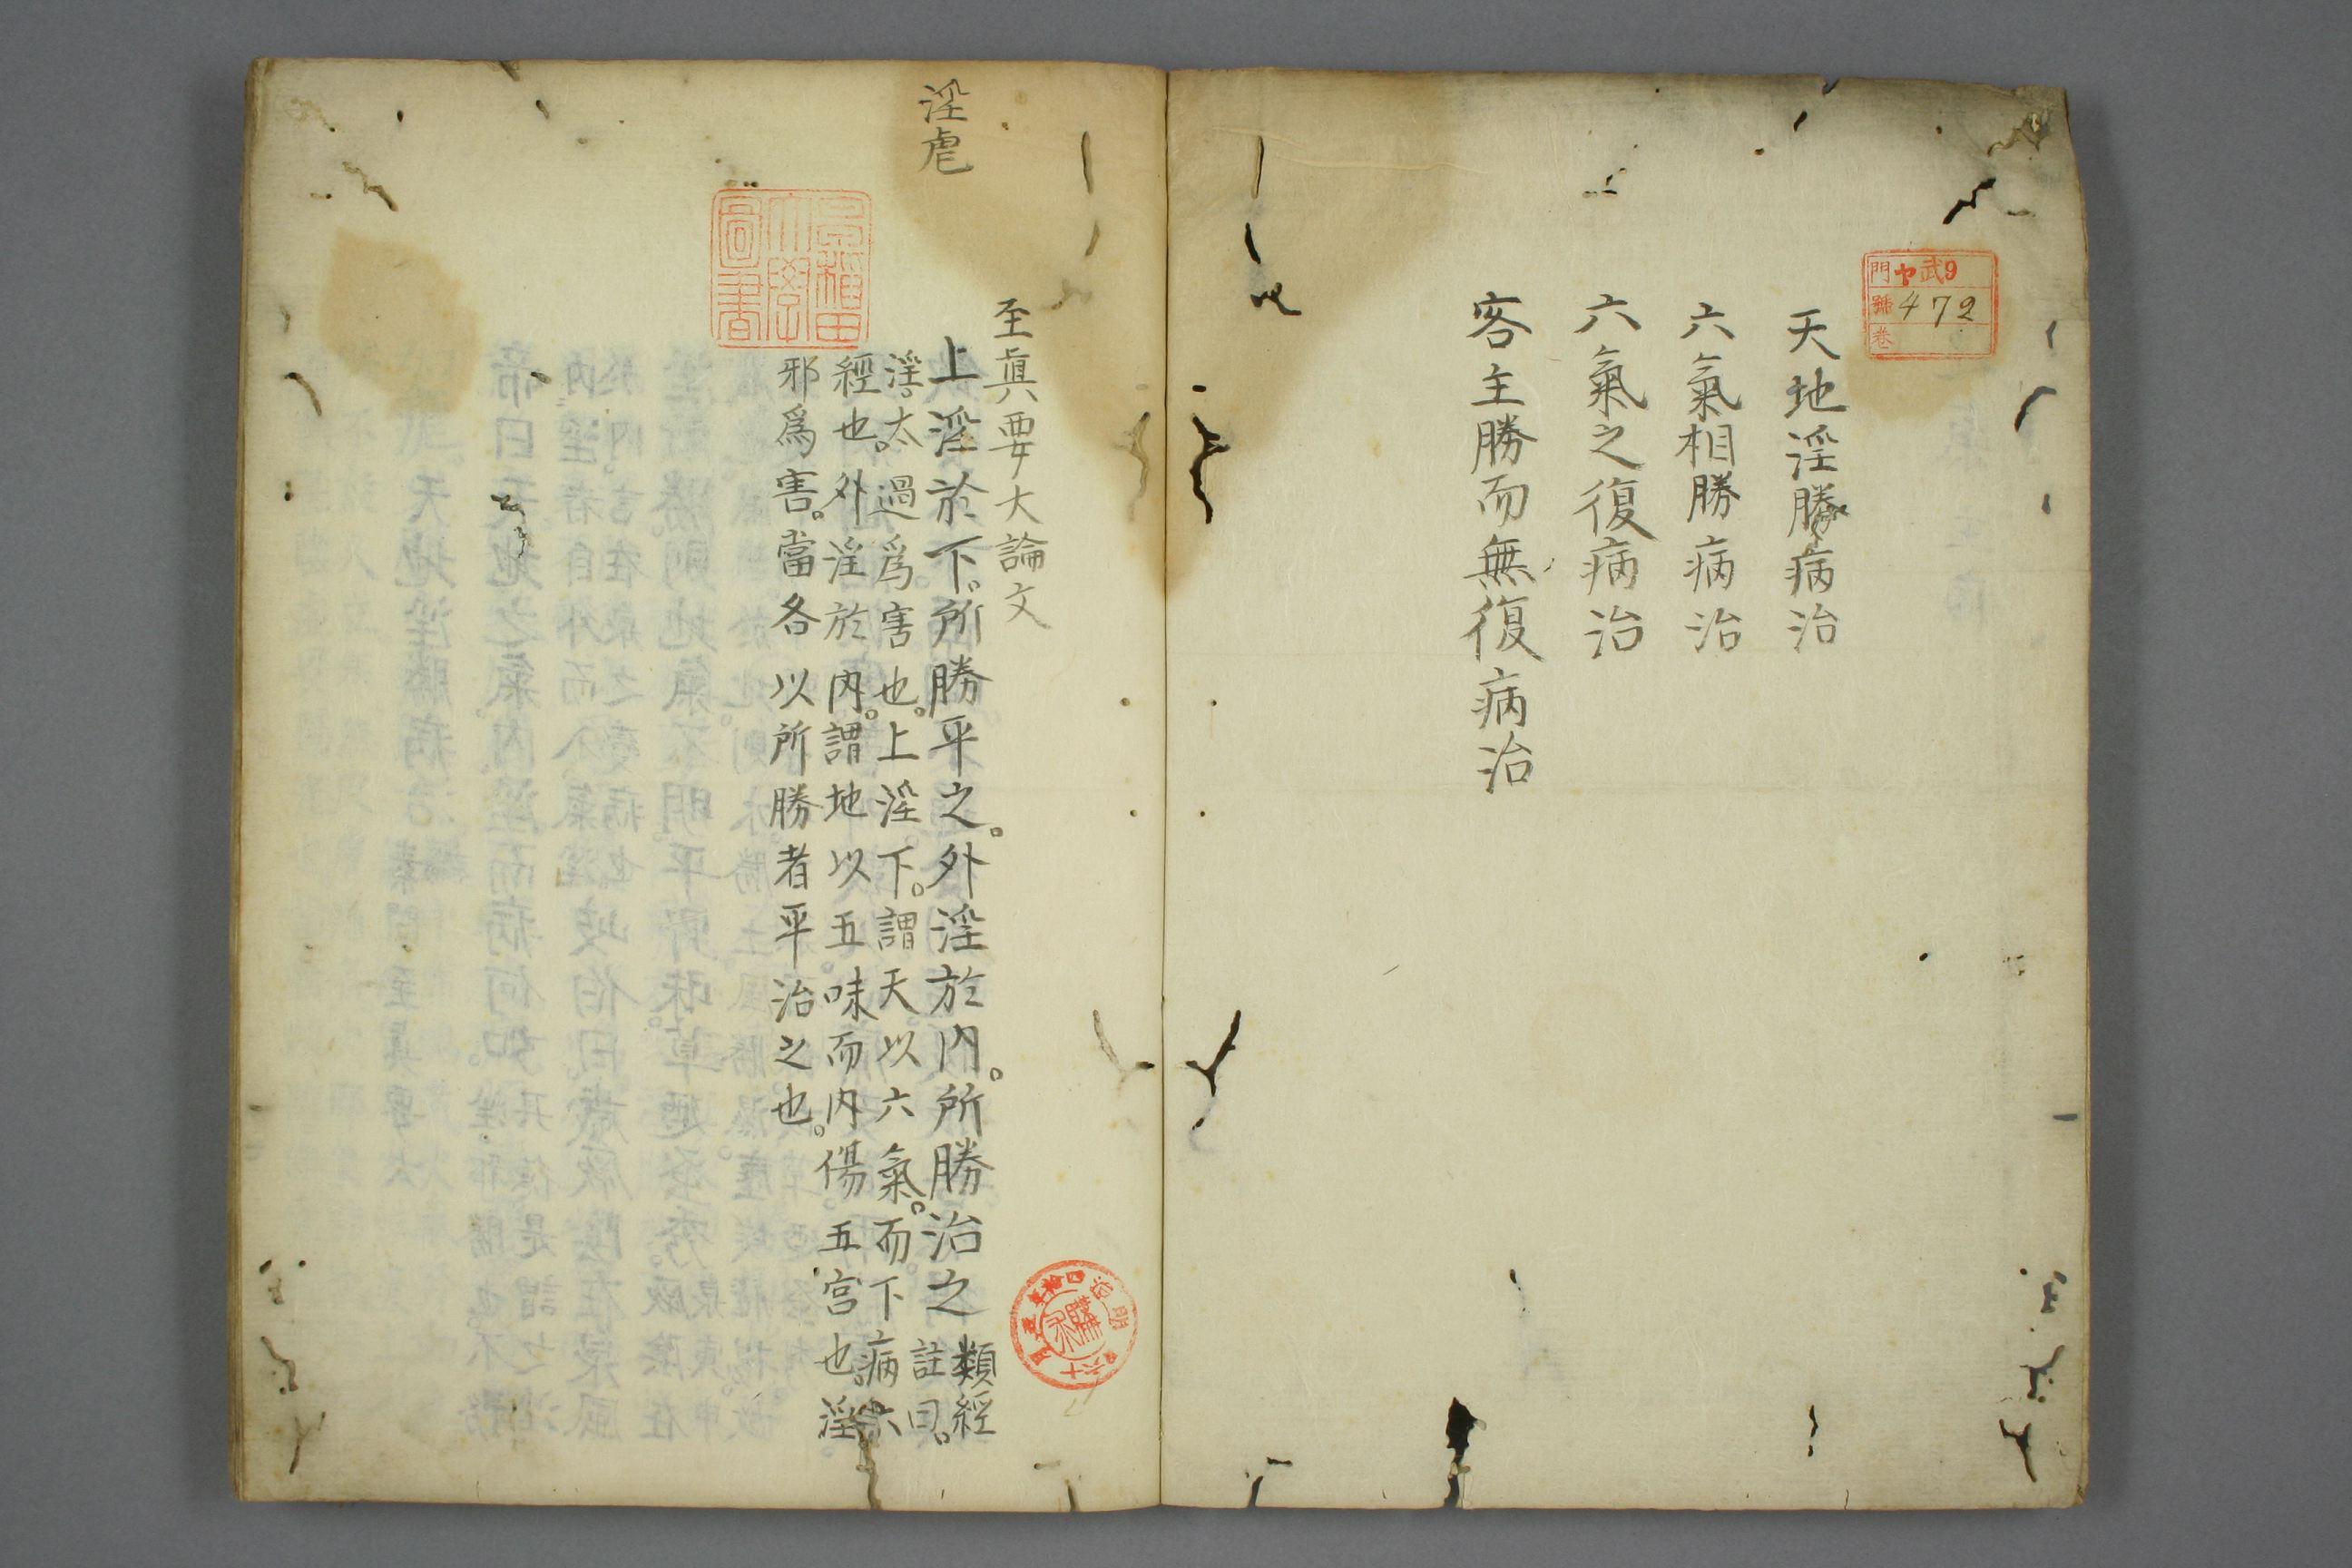 門 ヤ武9
號 472
卷
天地淫勝病治
六氣相勝病治
六氣之復病治
客主勝而無復病治
至真要大論文
淫虐
上淫於下。所勝平之。外淫於内。所勝治之 類經
註曰。
淫。太過爲害也。上淫下。謂天以六氣。而下病六
經也。外淫於内。謂地以五味而内傷五宫也。淫
邪爲害。當各以所勝者平治之也。
早稲田
大學
圖書
明治四拾
購求